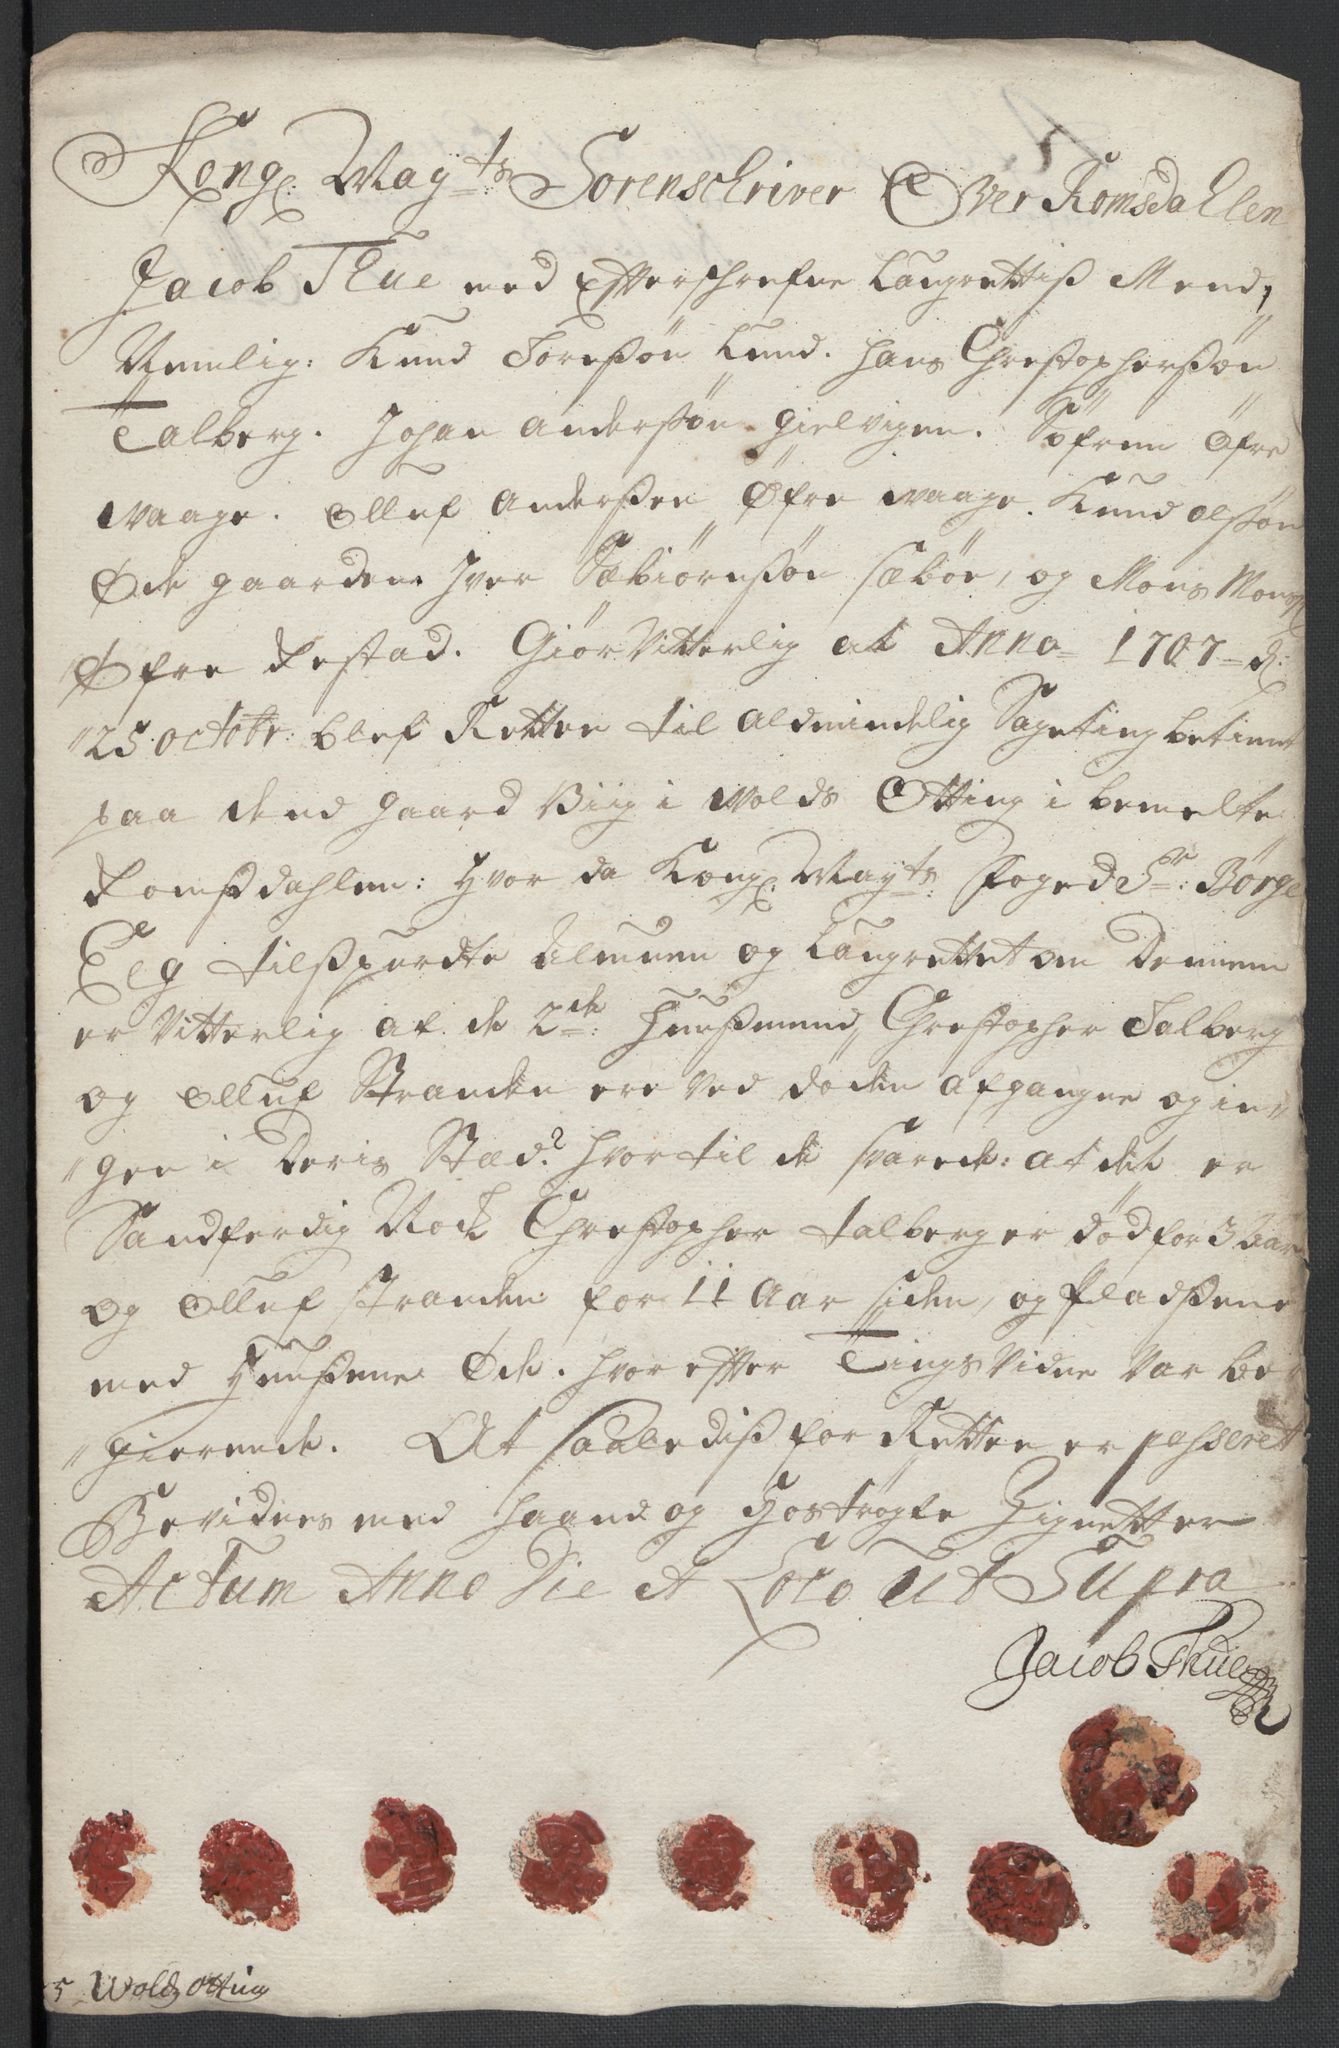 Kong: May:ts Sorenschriver Over Romsdahlen
Jacob Thue med Efterschrefne Laugrettiß Mend,
Nemlig: Knud Toreßøn Lund. Hans Chrestopherßøn
Talberg. Johan Anderßøn Hielvigen. Søfren Øfre
Waage. Olluf Anderßen Øfre Waage. Knud Olßøn
Øde gaarden. Iver Sæbiørnßøn Sæbøe, og Mons Monß:
Øfre Restad. Giør Vitterlig at Anno 1707 d:
25 octobr: blef Retten til Aldmindelig Sageting betient
paa dend gaard Viig i Wolds Otting i bemelte
Romßdahlen: Hvor da Kong: May:ts Foged Sr: Børge
Elg tilßpurdte Almuen og Laugrettet om Dennem
er Vitterlig at de 2de: Huußmend, Chrestopher Talberg
og Olluf Stranden ere Ved døden afgangne og in„
„gen i Deris Stæd? hvortil de svarede: at det er
Sandferdig Noch Chrestopher Talberg er død for 3 Aar
og Olluf Stranden for 11 Aar siden, og Pladßene
med Huußene Øde. hvorefter Tings Vidne Var be
„gierende. At saalediß for Retten er passeret
Bevidnes med Haand og Hostrøgte Zignetter
Actum Anno Die et Loco Ut Supra
Jacob Thue
5 Wolds Otting